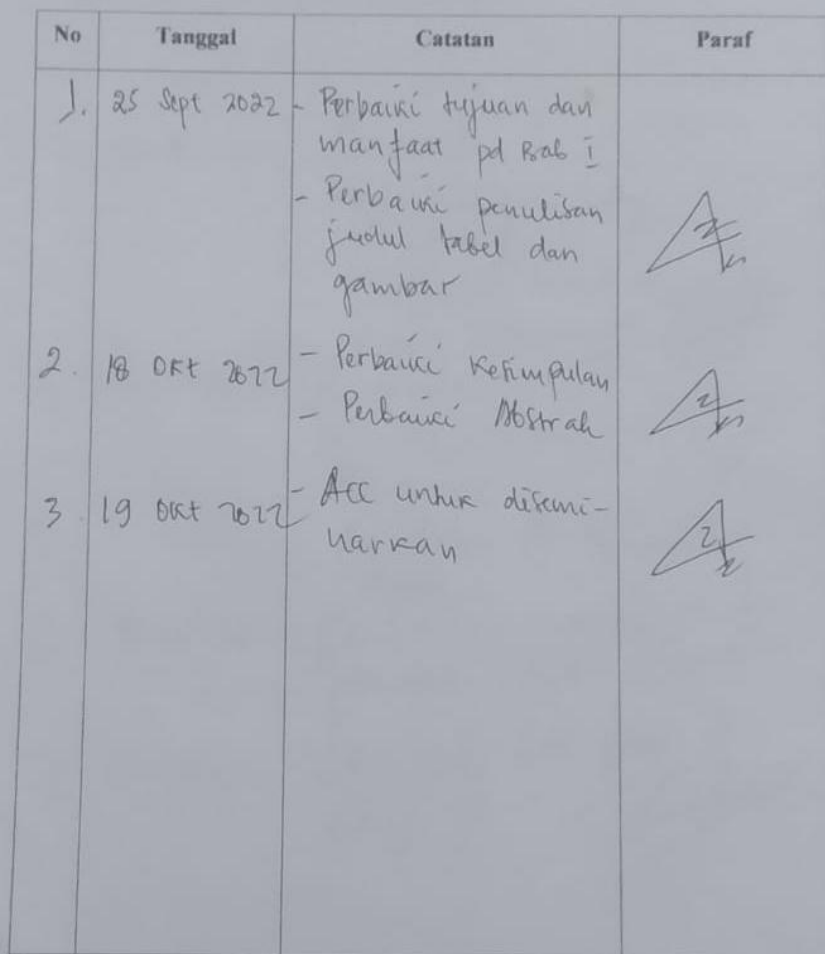 No Tanggal Catatan Paraf
1. 25 Sept 2022 - Perbaiki tujuan dan
manfaat pd Bab I
- Perbaiki penulisan
judul tabel dan
gambar
2. 18 Okt 2022 - Perbaiki Kesimpulan
- Perbaiki Abstrak
3. 19 Okt 2022 - Acc untuk disemi-
narkan